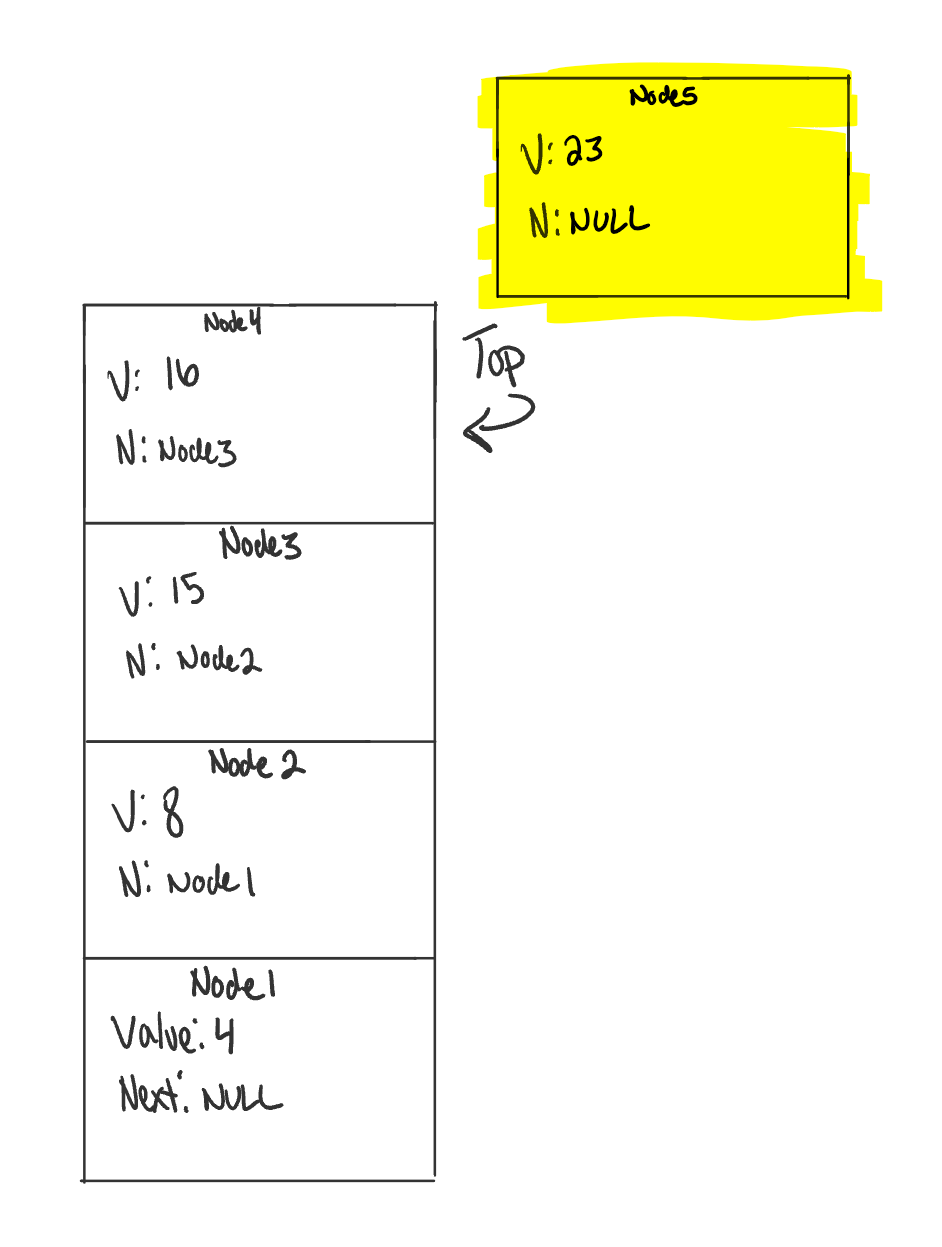 Node5
V: 23
N: NULL
Node4
V: 16
N: Node3
Top
Node3
V: 15
N: Node2
Node 2
V: 8
N: Node1
Node1
Value: 4
Next: NULL